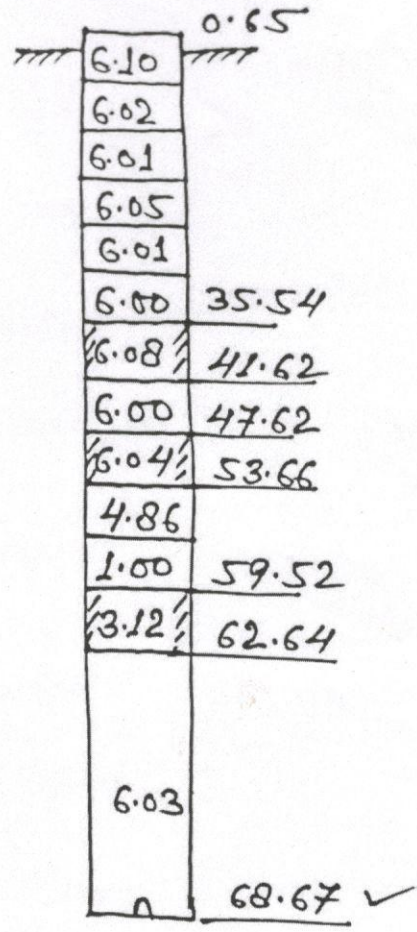 0.65
6.10
6.02
6.01
6.05
6.01
6.00 35.54
6.08 41.62
6.00 47.62
6.04 53.66
4.86
1.00 59.52
3.12 62.64
6.03
68.67 ✓